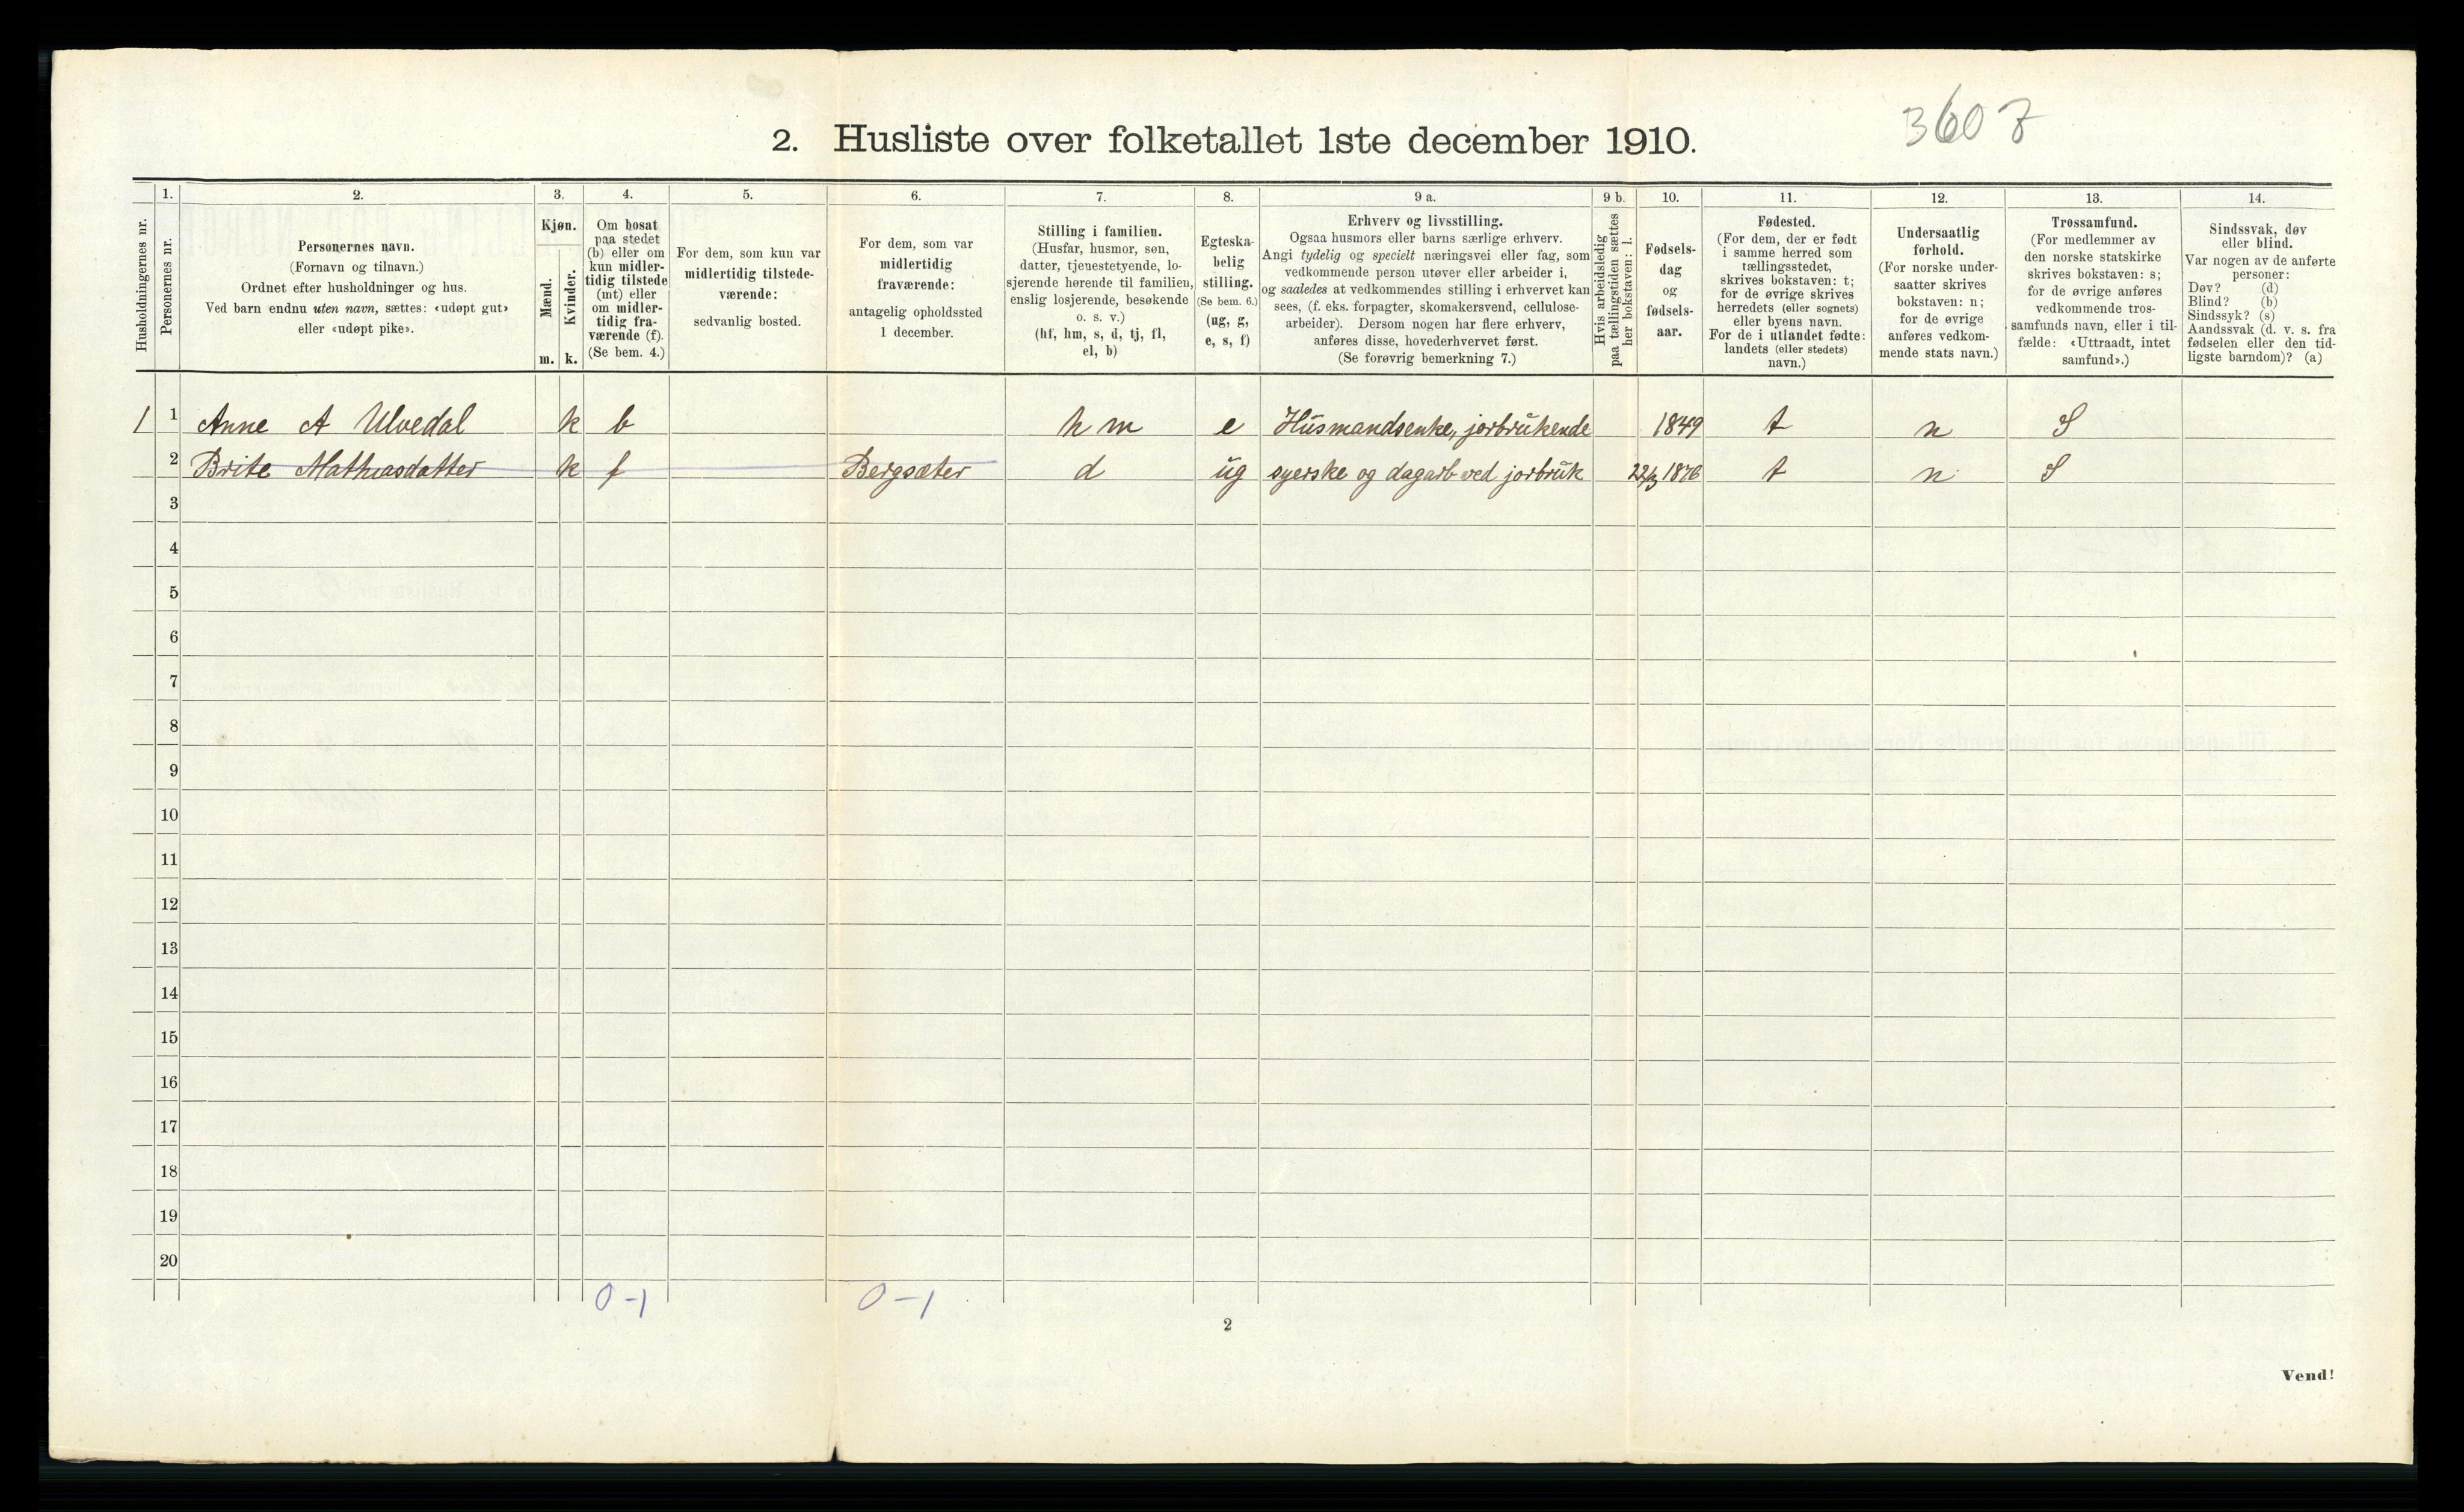 3607
2. Husliste over folketallet 1ste december 1910.
Husholdningernes nr.
1.
Personernes nr.
2.
Personernes navn.
(Fornavn og tilnavn.)
Ordnet efter husholdninger og hus.
Ved barn endnu uten navn, sættes: «udøpt gut»
eller «udøpt pike».
3.
Kjøn.
Mænd.
Kvinder.
m. k.
4.
Om bosat
paa stedet
(b) eller om
kun midler-
tidig tilstede
(mt) eller
om midler-
tidig fra-
værende (f).
(Se bem. 4.)
5.
For dem, som kun var
midlertidig tilstede-
værende:
sedvanlig bosted.
6.
For dem, som var
midlertidig
fraværende:
antagelig opholdssted
1 december.
7.
Stilling i familien.
(Husfar, husmor, søn,
datter, tjenestetyende, lo-
sjerende hørende til familien,
enslig losjerende, besøkende
o. s. v.)
(hf, hm, s, d, tj, fl,
el, b)
8.
Egteska-
belig
stilling.
(Se bem. 6.)
(ug, g,
e, s, f)
9 a.
Erhverv og livsstilling.
Ogsaa husmors eller barns særlige erhverv.
Angi tydelig og specielt næringsvei eller fag, som
vedkommende person utøver eller arbeider i,
og saaledes at vedkommendes stilling i erhvervet kan
sees, (f. eks. forpagter, skomakersvend, cellulose-
arbeider). Dersom nogen har flere erhverv,
anføres disse, hovederhvervet først.
(Se forøvrig bemerkning 7.)
9 b.
Hvis arbeidsledig
paa tællingstiden sættes
her bokstaven: l.
10.
Fødsels-
dag
og
fødsels-
aar.
11.
Fødested.
(For dem, der er født
i samme herred som
tællingsstedet,
skrives bokstaven: t;
for de øvrige skrives
herredets (eller sognets)
eller byens navn.
For de i utlandet fødte:
landets (eller stedets)
navn.)
12.
Undersaatlig
forhold.
(For norske under-
saatter skrives
bokstaven: n;
for de øvrige
anføres vedkom-
mende stats navn.)
13.
Trossamfund.
(For medlemmer av
den norske statskirke
skrives bokstaven: s;
for de øvrige anføres
vedkommende tros-
samfunds navn, eller i til-
fælde: «Uttraadt, intet
samfund».)
14.
Sindssvak, døv
eller blind.
Var nogen av de anførte
personer:
Døv? (d)
Blind? (b)
Sindssyk? (s)
Aandssvak (d. v. s. fra
fødselen eller den tid-
ligste barndom)? (a)
1 1 Anne A Ulvedal k b hm e Husmandsenke, jorbrukende 1849 t n S
2 Brite Mathiasdatter k f Bergsæter d ug syerske og dagarb ved jorbruk 22/3 1876 t n S
3
4
5
6
7
8
9
10
11
12
13
14
15
16
17
18
19
20
0-1 0-1
2
Vend!